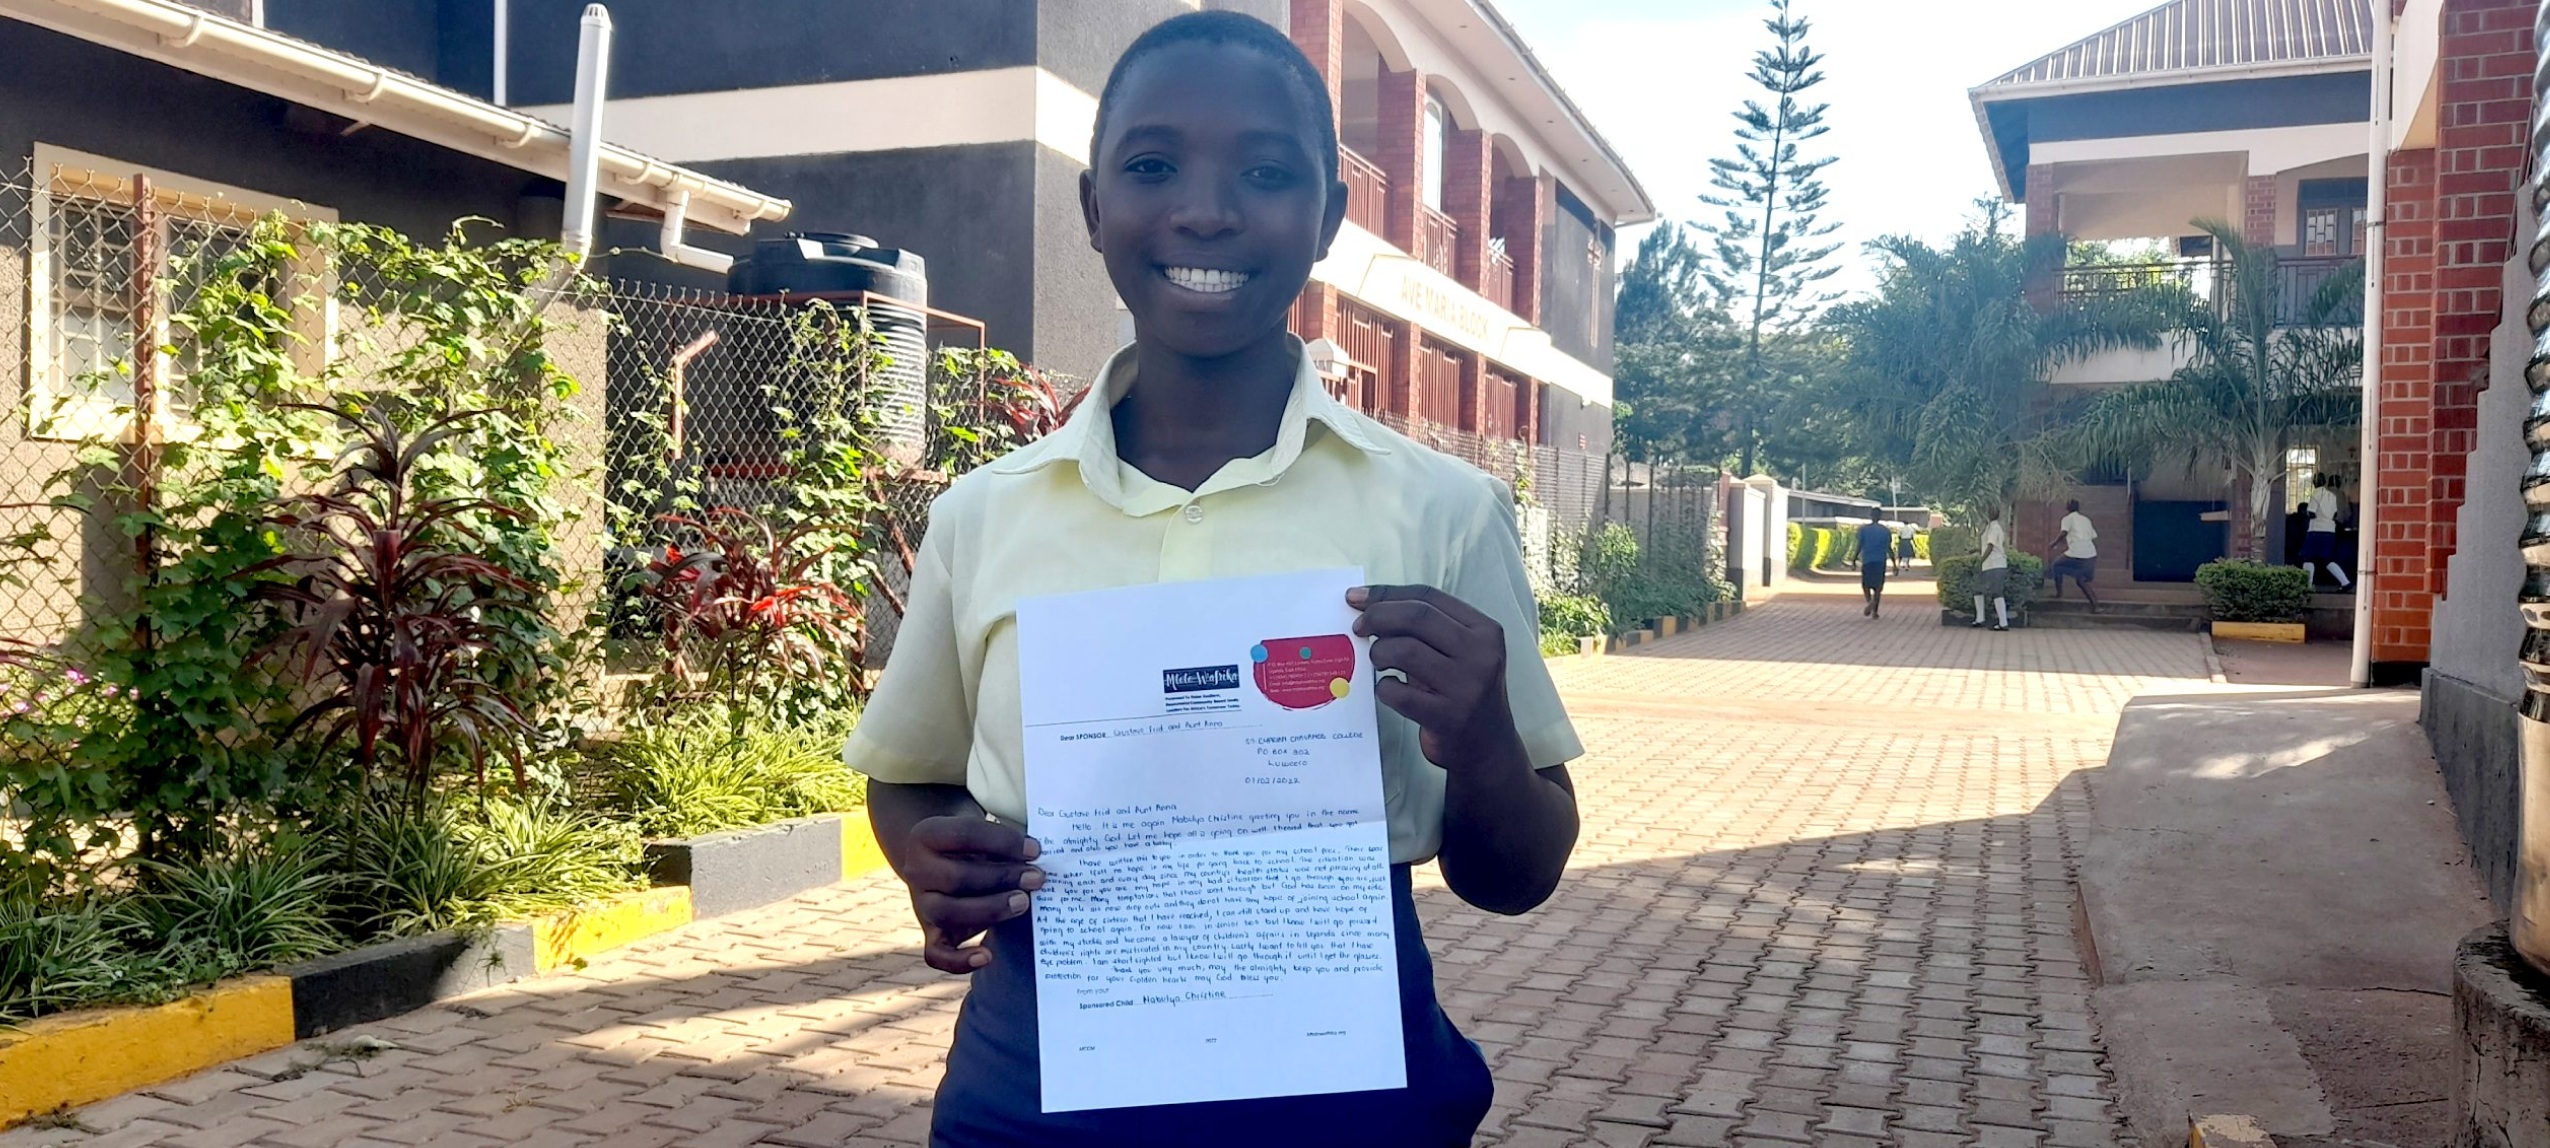 AVE MARIA BLOCK
Mtoto Wa Afrika
Dear SPONSOR Gustave Frid and Aunt Anna
COLLEGE
PO BOX 302
Luweero
01/02/2022
Dear Gustave Frid and Aunt Anna
Hello. It is me again Nabulya Christine greeting you in the name
of the almighty God. Let me hope all is going on well. I heard that you got
married and also you have a baby.
I have written this to you in order to thank you for my school fees. There was
time when I felt no hope in me life for going back to school. The situation was
each and every day since my country's health status was not pleasing at all.
thank you for you are my hope in any bad situation that I go through you are just
there for me. Many temptations that I have went through but God has been on my side.
Many girls are now drop outs and they do not have any hope of joining school again.
At the age of sixteen that I have reached, I can still stand up and have hope of
going to school again. For now I am in senior two but I know I will go forward
with my studies and become a lawyer of children's affairs in Uganda since many
children's rights are mistreated in my country. Lastly I want to tell you that I have
eye problem. I am short sighted but I know I will go through it until I get the glasses.
Thank you very much, may the almighty keep you and provide
protection for your Golden hearts may God bless you.
From your
Sponsored Child Nabulya Christine